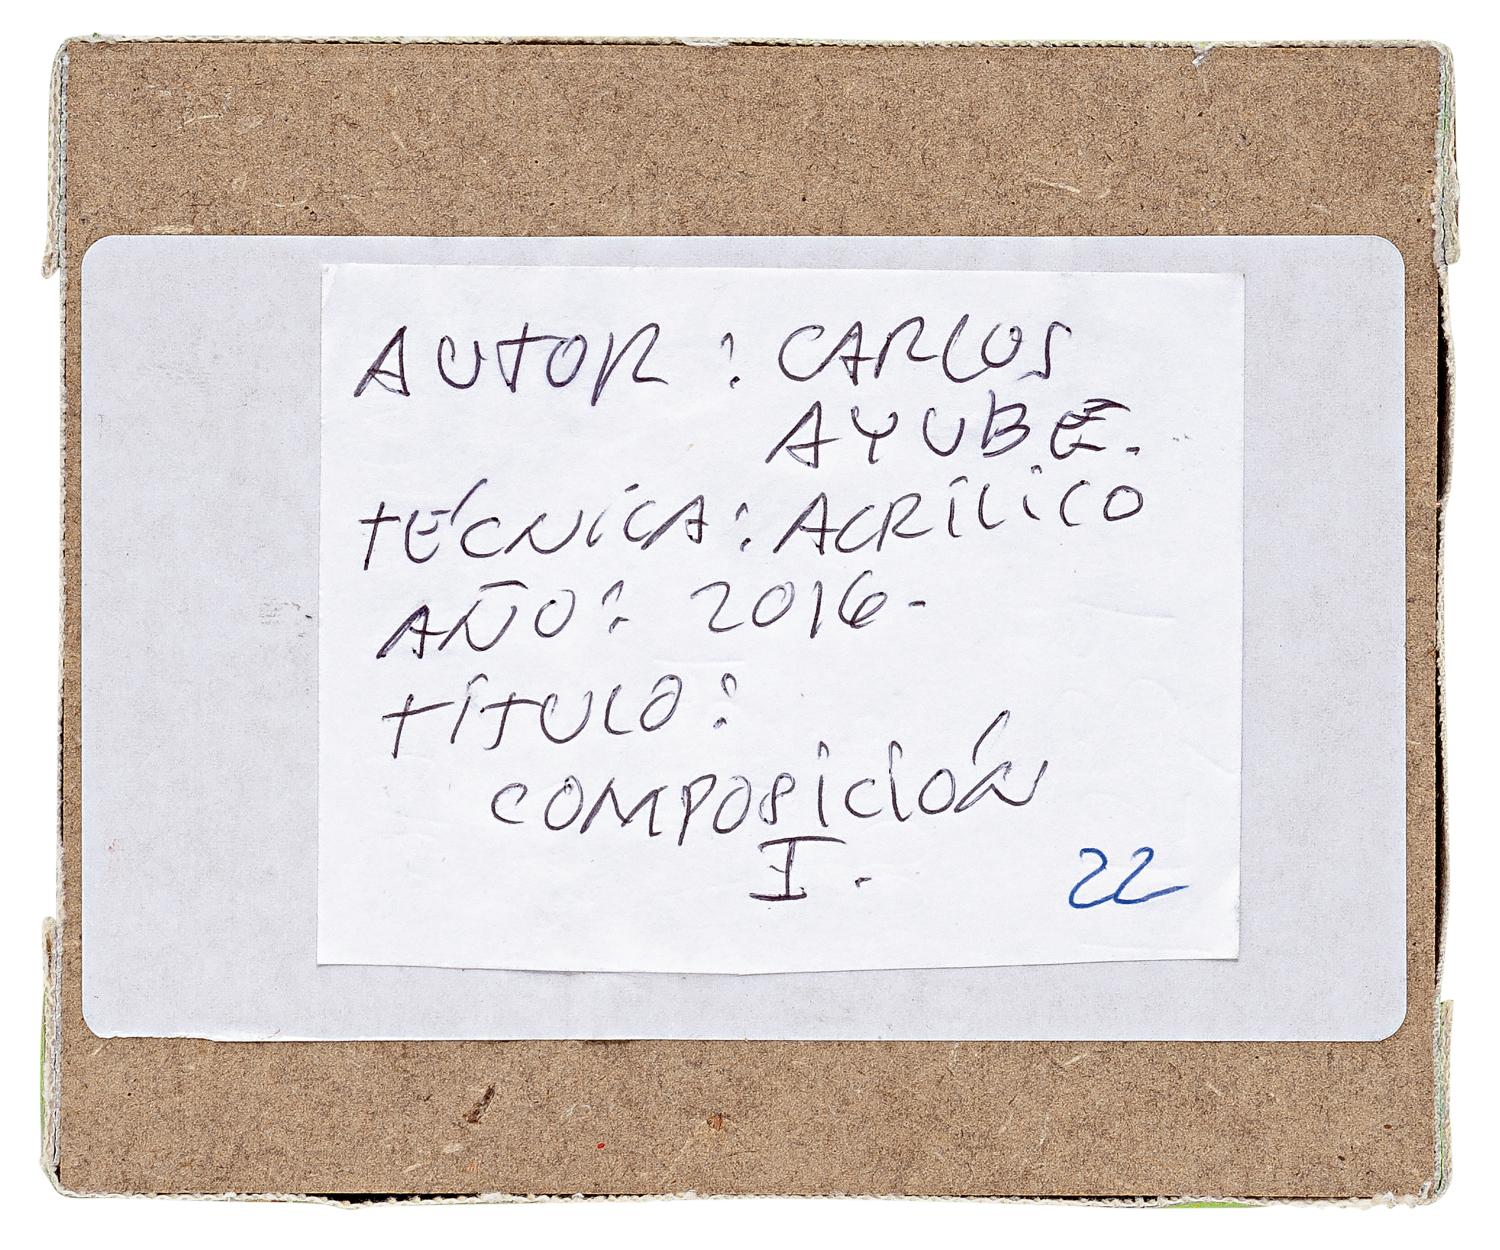 AUTOR: CARLOS
AYUB E.
TÉCNICA: ACRÍLICO
AÑO: 2016-
TÍTULO:
COMPOSICIÓN
I.
22